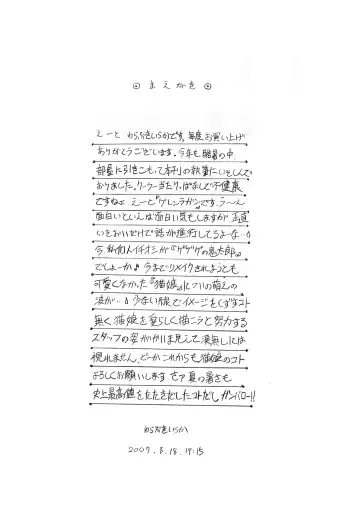 ◎ まえがき ◎
えーと わらぶきいらかです。毎度お買い上げ
ありがとうございます。今年も酷暑の中
部屋に引きこもって本刊の執筆にいそしんで
おりました。クーラー当たりっぱなしで不健康
ですねェ えーと『グレンラガン』です。うーん
面白いといえば面白い気もしますが、正直
いきおいだけで話が進行してるよーな…◊
今、私的人イチオシが『ゲゲゲの鬼太郎』
でしょーか♪ 今までリメイクされようとも
可愛くなかった『猫娘』についの萌えの
波が…◊ 少ない線でイメージをくずすコト
無く猫娘を愛らしく描こうと努力する
スタッフの姿がかいま見えて涙無しには
視れません。どーかこれからも猫娘のコト
よろしくお願いします さァ夏の暑さも
史上最高値をたたきだしたコトだし ガンバロー!!
わらぶきいらか
2007.8.18.19:15